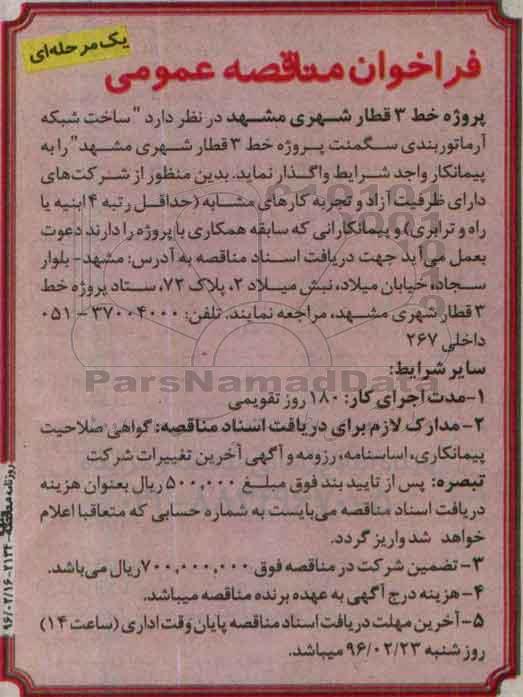 یک مرحله‌ای
فراخوان مناقصه عمومی
پروژه خط ۳ قطار شهری مشهد در نظر دارد "ساخت شبکه
آرماتوربندی سگمنت پروژه خط ۳ قطار شهری مشهد" را به
پیمانکار واجد شرایط واگذار نماید. بدین منظور از شرکت‌های
دارای ظرفیت آزاد و تجربه کارهای مشابه (حداقل رتبه ۴ ابنیه یا
راه و ترابری) و پیمانکارانی که سابقه همکاری با پروژه را دارند دعوت
بعمل می‌آید جهت دریافت اسناد مناقصه به آدرس: مشهد- بلوار
سجاد، خیابان میلاد، نبش میلاد ۲، پلاک ۷۳، ستاد پروژه خط
۳ قطار شهری مشهد، مراجعه نمایند. تلفن: ۳۷۰۰۴۰۰۰ - ۰۵۱
داخلی ۲۶۷
سایر شرایط:
ParsNamadData
۱-مدت اجرای کار: ۱۸۰ روز تقویمی
۲-مدارک لازم برای دریافت اسناد مناقصه: گواهی صلاحیت
پیمانکاری، اساسنامه، رزومه و آگهی آخرین تغییرات شرکت
تبصره: پس از تایید بند فوق مبلغ ۵۰۰,۰۰۰ ریال بعنوان هزینه
دریافت اسناد مناقصه می‌بایست به شماره حسابی که متعاقبا اعلام
خواهد شد واریز گردد.
۳- تضمین شرکت در مناقصه فوق ۷۰۰,۰۰۰,۰۰۰ ریال می‌باشد.
۴-هزینه درج آگهی به عهده برنده مناقصه میباشد.
۵-آخرین مهلت دریافت اسناد مناقصه پایان وقت اداری (ساعت ۱۴)
روز شنبه ۹۶/۰۲/۲۳ میباشد.
روزنامه ۲۱۲۴-۹۶/۰۲/۱۶